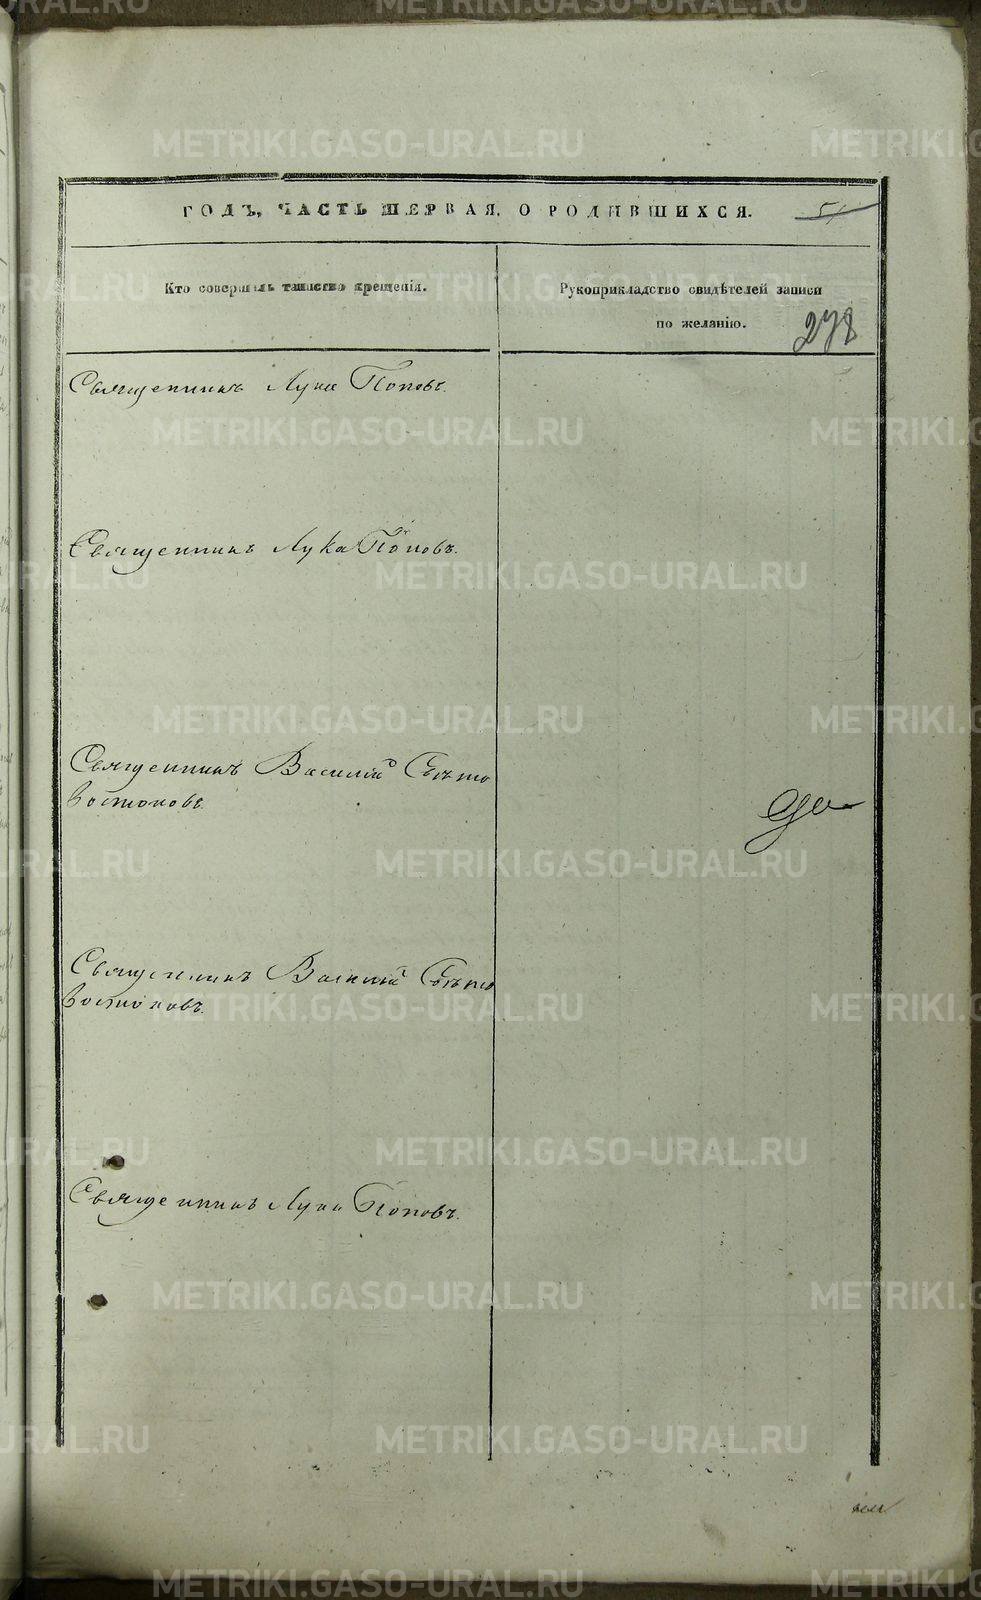 ГОДЪ, ЧАСТЬ ПЕРВАЯ, О РОДИВШИХСЯ. 51
Кто совершалъ таинство крещенія.
Рукоприкладство свидѣтелей записи
по желанію.
278
Священникъ Лука Поповъ.
Священникъ Лука Поповъ.
Священникъ Василій Свѣто
востоковъ
Священникъ Василій Свѣто
востоковъ.
Священникъ Лука Поповъ.
METRIKI.GASO-URAL.RU